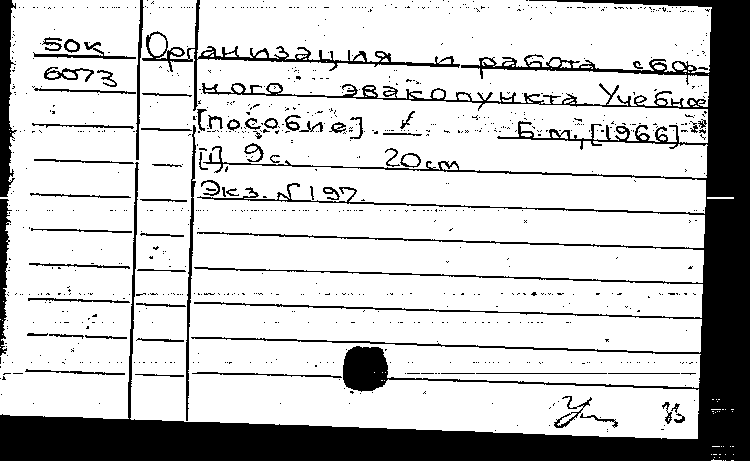 50К Организация и работа сбор-
6073 ного эвакопункта Учебное
[пособие] Б.м., [1966]
[1], 9с. 20cm
Экз. № 197.